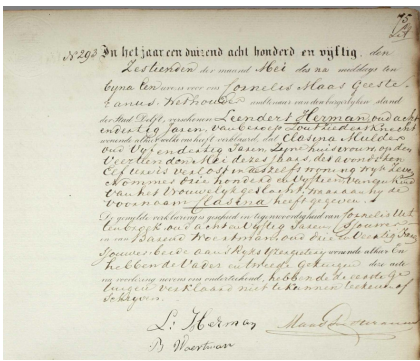 75
No 293 In het jaar een duizend acht honderd en vijftig, den
Zestienden der maand Mei des na middags ten
Cornelis Maas Geeste
ranus, Wethouder ambtenaar van den burgerlijken stand
der Stad Delft, verschenen Leendert Herman, oud acht
en dertig Jaren, van beroep Zoutziedersknecht
wonende alhier welke ons heeft verklaard, dat Clasina Mulder
oud Vijf en dertig Jaren Zijne huisvrouw, op den
Veertienden Mei dezes Jaars, des avonds ten
Elf ure is verlost in das zelfs woning Wijk Zeven
Nommer Drie honderd en Vijftien van een kind
van het Vrouwelijk geslacht, waaraan hij de
voornaam Clasina heeft gegeven.
De gemelde verklaring is geschied in tegenwoordigheid van Cornelis
oud acht en Vijftig Jaren, Sjouwer
en van Barend Woertman, oud drie en Veertig Jaren
Sjouwer beide aan Rijks wonende alhier En
hebbende Vader en tweede Getuigen deze acte
na voorlezing nevens ons onderteekend, hebbende de eerste
Getuige verklaard niet te kunnen teekenen of
Schrijven.
L: Herman
B Woertman